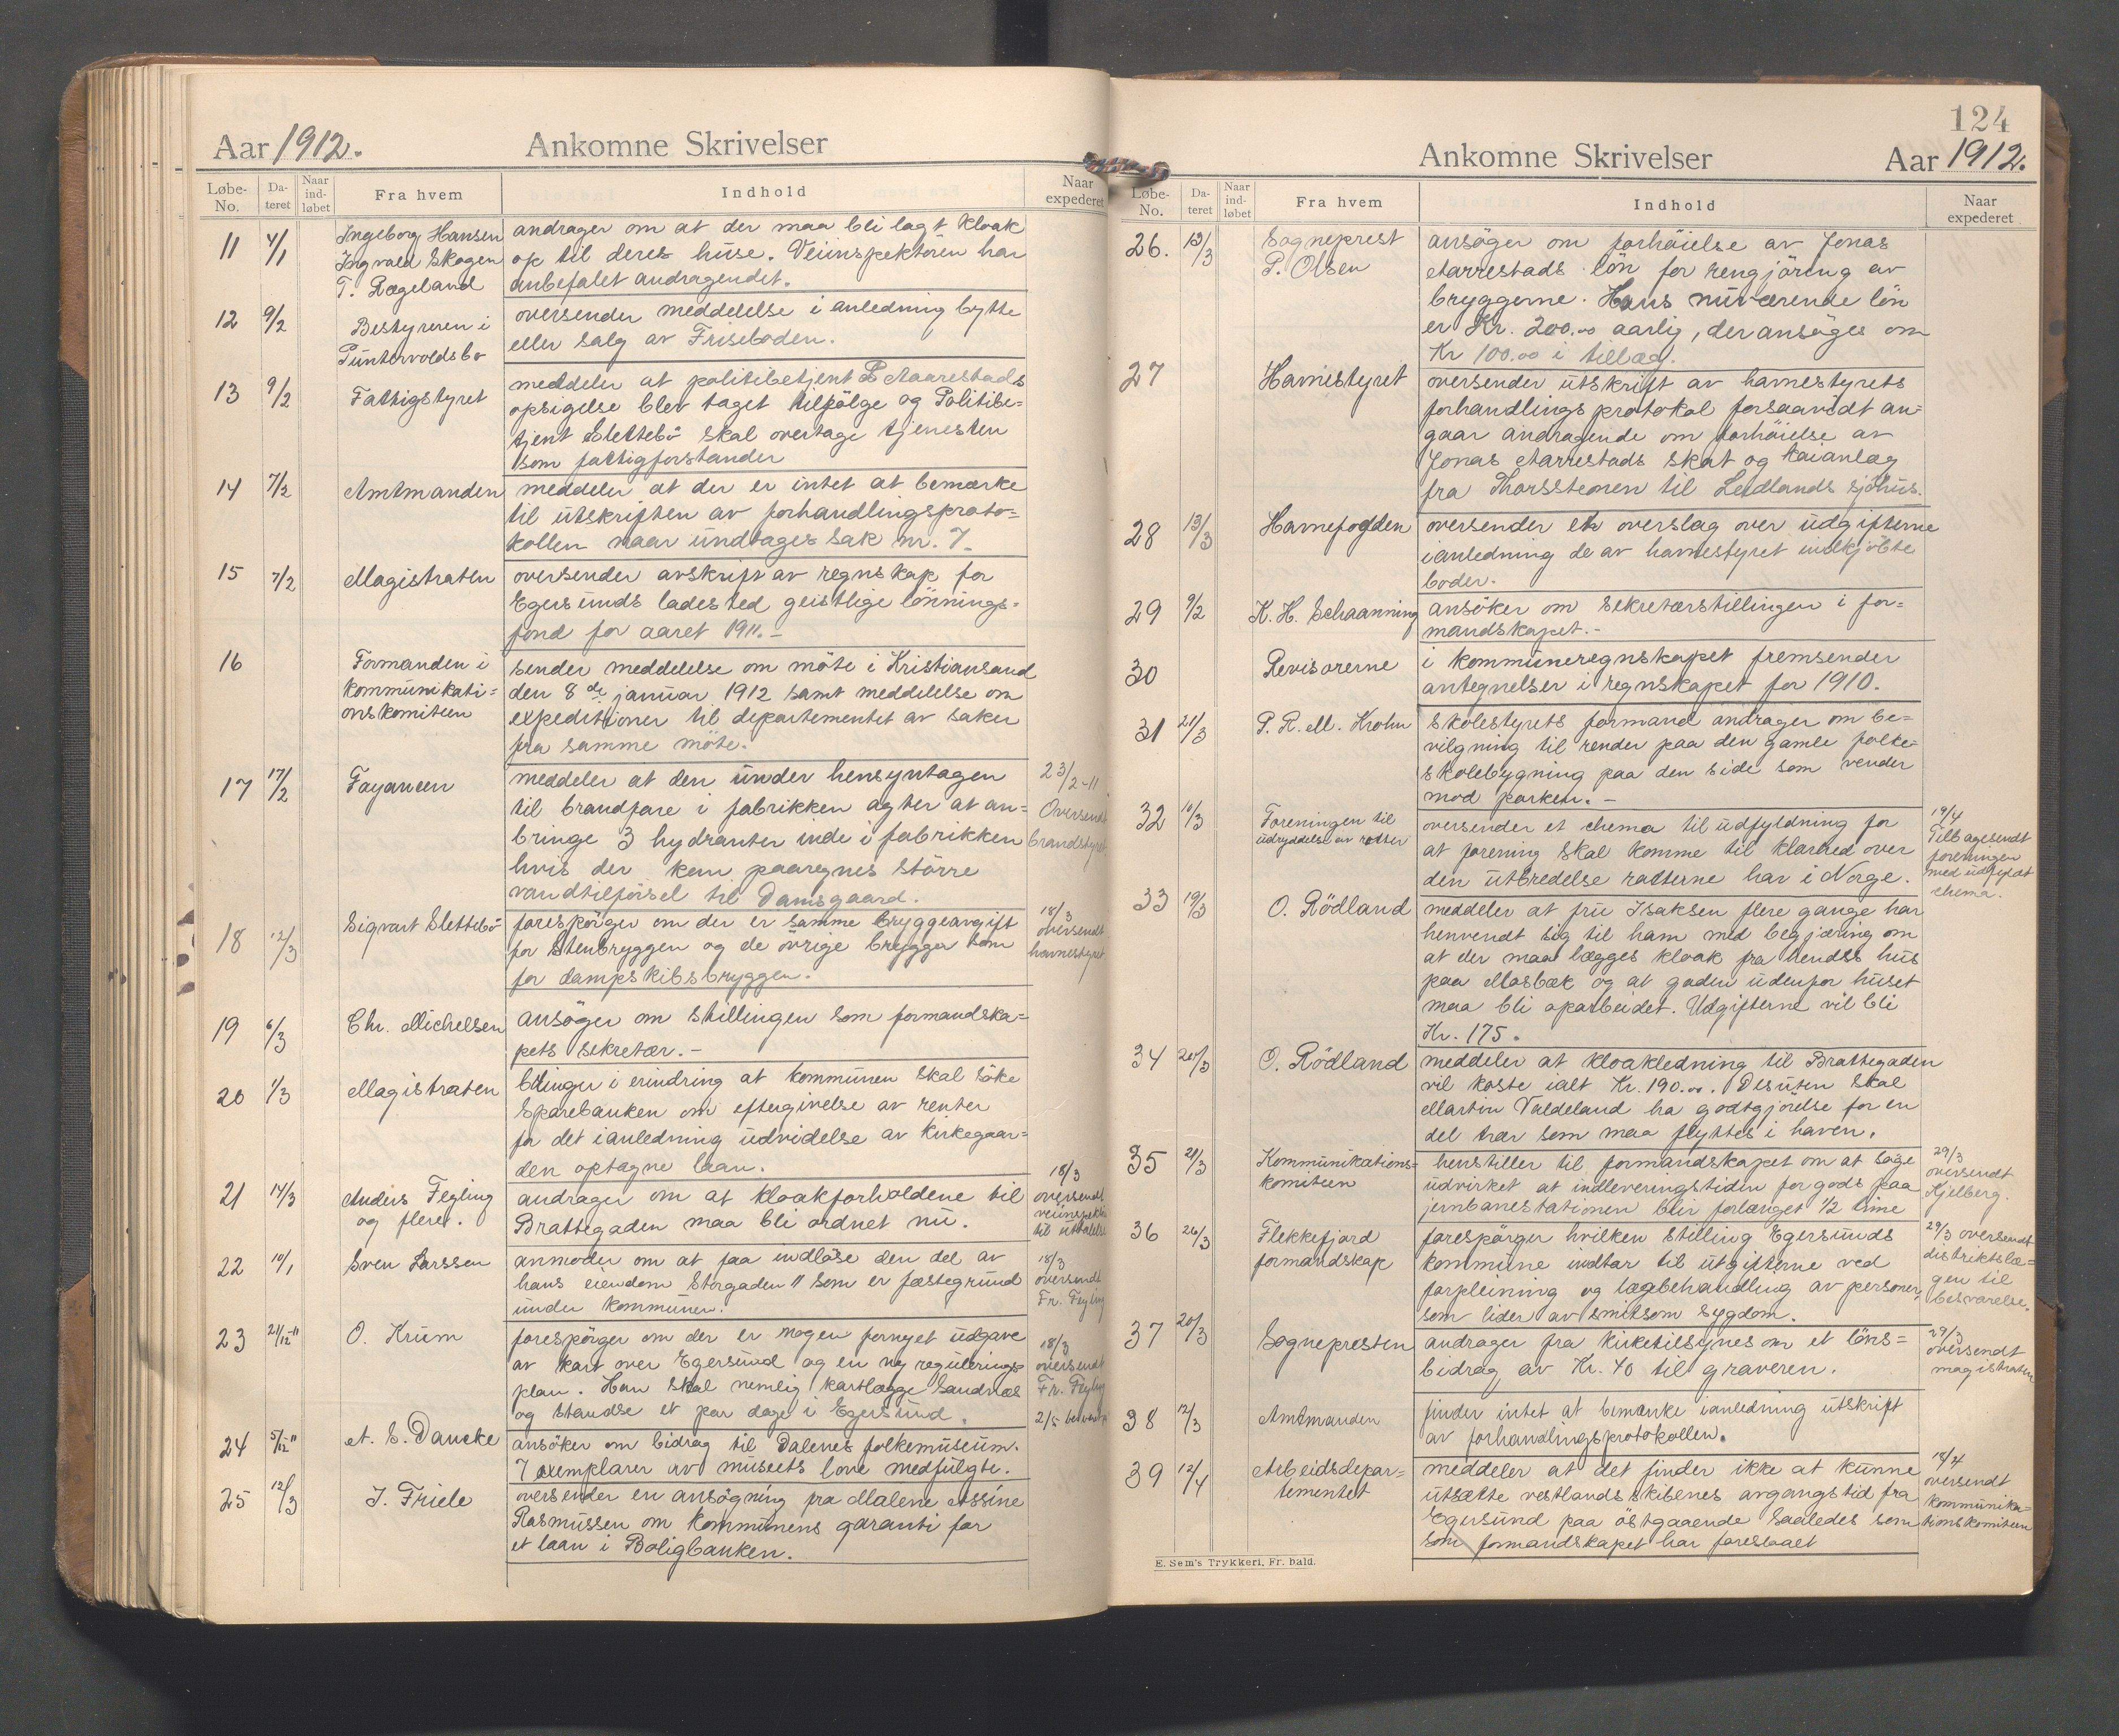 Aar 1912.
Ankomne Skrivelser
Løbe-No.
Da-teret
Naar ind-løbet
Fra hvem
Indhold
Naar expederet
11 4/1 Ingeborg Hansen
Ingvald Skogen
T. Rægeland
andrager om at der maa bli lagt kloak
op til deres huse. Veiinspektøren har
anbefalet andragendet.
12 9/2 Bestyreren i
Puntervoldsbo
oversender meddelelse i anledning bytte
eller salg av Friseboden.
13 9/2 Fattigstyret
meddeler at politibetjent Aarrestads
opsigelse blev taget tilfölge og Politibe=
tjent Slettebö skal overtage tjenesten
som fattigforstander
14 7/2 Amtmanden
meddeler at der er intet at bemærke
til utskriften av forhandlingsproto=
kollen naar undtages sak nr. 7.
15 7/2 Magistraten
oversender avskrift av regnskap for
Egersunds ladested geistlige lönnings=
fond for aaret 1911.-
16 Formanden i
kommunikati=
onskomiteen
sender meddelelse om möte i Kristiansand
den 8de januar 1912 samt meddelelse om
expeditioner til departementet av saker
fra samme möte.
17 17/2 Fayancen
meddeler at den under hensyntagen
til brandfare i fabrikken agter at an=
bringe 3 hydranter inde i fabrikken
hvis der kan paaregnes större
vandtilförsel til Damsgaard.
23/2-11
Oversendt
brandstyret
18 12/3 Sigvart Slettebö
forespörger om der er samme bryggeavgift
for Stenbryggen og de övrige brygger som
for dampskibsbryggen.
18/3
oversendt
havnestyret
19 6/3 Chr. Michelsen
ansöger om stillingen som formandska=
pets sekretær.-
20 1/3 Magistraten
bringer i erindring at kommunen skal söke
Sparebanken om eftergivelse av renter
for det i anledning udvidelse av kirkegaar=
den optagne laan.
21 14/3 Anders Fegling
og flere.
andrager om at kloakforholdene til
Brattegaden maa bli ordnet nu.
18/3
oversendt
veiinspektör
til uttalelse
22 10/1 Sven Larssen
anmoder om at faa indløse den del av
hans eiendom Storgaden 11 som er fæstegrund
under kommunen.
18/3
oversendt
Fr. Fegling
23 21/12-11 O. Krum
forespörger om der er nogen fornyet udgave
av kart over Egersund og en ny regulerings
plan. Han skal nemlig kartlægge Sandnæs
og standse et par dage i Egersund.
18/3
oversendt
Fr. Fegling
2/5 besvart
24 5/12-11 A. S. Dancke
ansöker om bidrag til Dalenes folkemuseum.
7 exemplarer av museets love medfulgte.
25 12/3 J. Friele
oversender en ansögning fra Malene Assine
Rasmussen om kommunens garanti for
et laan i Boligbanken.
124
Ankomne Skrivelser
Aar 1912.
Løbe-No.
Da-teret
Naar ind-løbet
Fra hvem
Indhold
Naar expederet
26. 13/3 Sogneprest
P. Olsen
ansöger om forhöielse av Jonas
Aarrestads lön for rengjöring av
bryggerne. Hans nuværende lön
er Kr. 200.00 aarlig, der ansöges om
Kr 100.00 i tillæg.
27 Havnestyret
oversender utskrift av havnestyrets
forhandlingsprotokol forsaavidt an=
gaar andragende om forhöielse av
Jonas Aarrestads skat og kaianlæg
fra Thorssteonen til Leidlands sjöhus.
28 13/3 Havnefogden
oversender et overslag over udgifterne
i anledning de av havnestyret indkjöbte
boder.
29 9/2 K. H. Schaanning
ansöker om sekretærstillingen i for=
mandskapet.-
30 Revisorerne
i kommuneregnskapet fremsender
antegnelser i regnskapet for 1910.
31 21/3 P. R. M. Krohn
skolestyrets formand andrager om be=
vilgning til render paa den gamle folke=
skolebygning paa den side som vender
mod parken.-
32 10/3 Foreningen til
udryddelse av rotter
oversender et schema til udfyldning for
at forening skal komme til klarhed over
den utbredelse rotterne har i Norge.
19/4
Tilbagesendt
foreningen
med udfyldt
schema.
33 19/3 O. Rödland
meddeler at fru Isaksen flere gange har
henvendt sig til ham med begjæring om
at der maa lægges kloak fra hendes hus
paa Mosbæk og at gaden udenfor huset
maa bli oparbeidet. Udgifterne vil bli
Kr. 175.
34 20/3 O. Rödland
meddeler at kloakledning til Brattegaden
vil koste ialt Kr. 190.00. Desuten skal
Martin Valdeland ha godtgjörelse for en
del trær som maa flyttes i haven.
35 21/3 Kommunikations=
komiteen
henstiller til formandskapet om at søge
udvirket at indleveringstiden for gods paa
jernbanestationen blir forlænget 1/2 time
29/3
oversendt
Kjelberg.
36 26/3 Flekkefjord
formandskap
forespörger hvilken stilling Egersunds
kommune indtar til utgifterne ved
forpleining og lægbehandling av personer,
som lider av smitsom sygdom.
29/3 oversendt
distriktslæ=
gen til
besvarelse.
37 20/3 Sognepresten
andrager fra kirketilsynes om et löns=
bidrag av Kr. 40 til graveren.
29/3
oversendt
magistraten
38 12/3 Amtmanden
finder intet at bemærke i anledning utskrift
av forhandlingsprotokollen.
39 12/4 Arbeidsdepar=
tementet
meddeler at det finder ikke at kunne
utsætte vestlandsskibenes avgangstid fra
Egersund paa östgaaende saaledes som
som formandskapet har foreslaaet
18/4
oversendt
kommunika=
tionskomiteen
E. Sem's Trykkeri, Fr. hald.